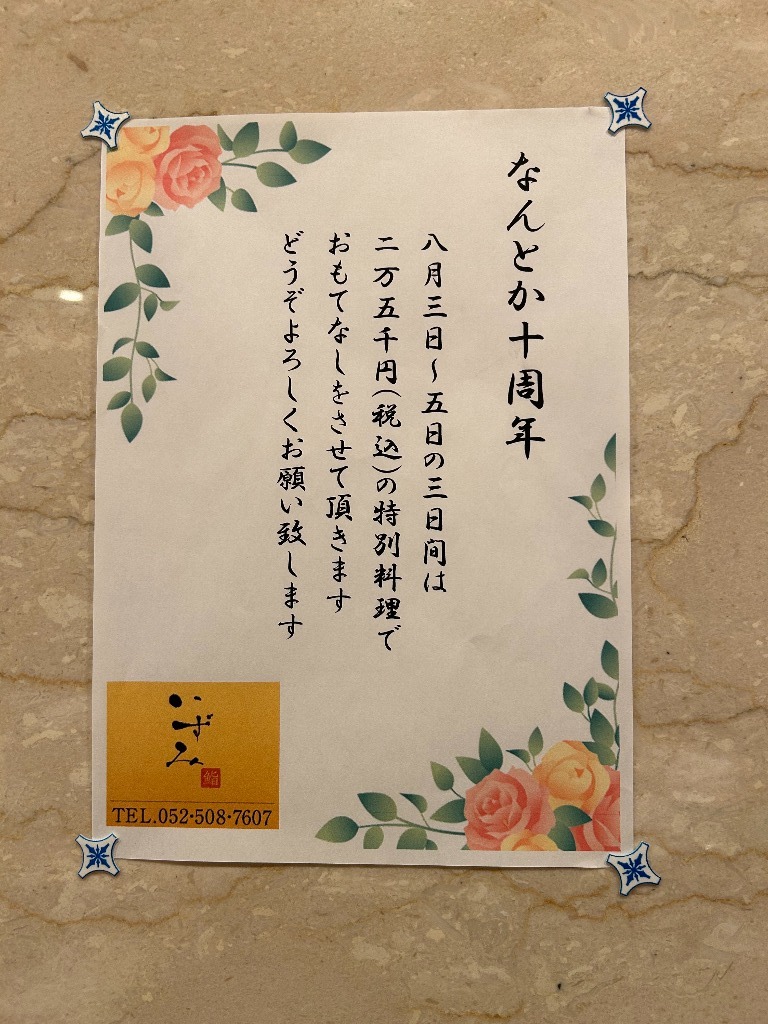 なんとか十周年
八月三日～五日の三日間は
二万五千円(税込)の特別料理で
おもてなしをさせて頂きます
どうぞよろしくお願い致します
いずみ
鮨
TEL.052・508・7607